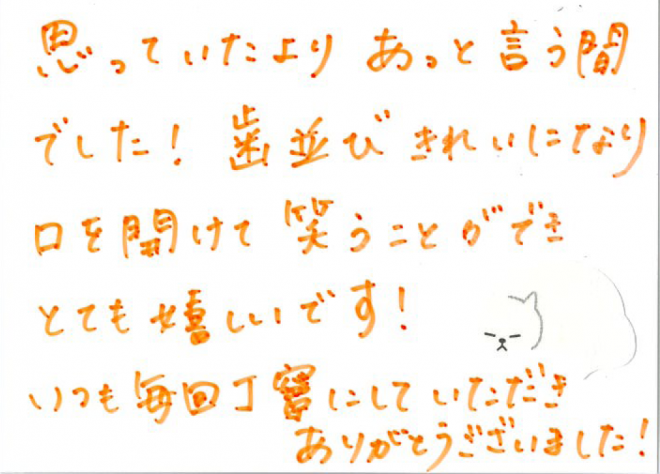 思っていたより あっと言う間
でした! 歯並び きれいになり
口を開けて 笑うことができ
とても嬉しいです!
いつも毎回丁寧にして いただき
ありがとうございました!